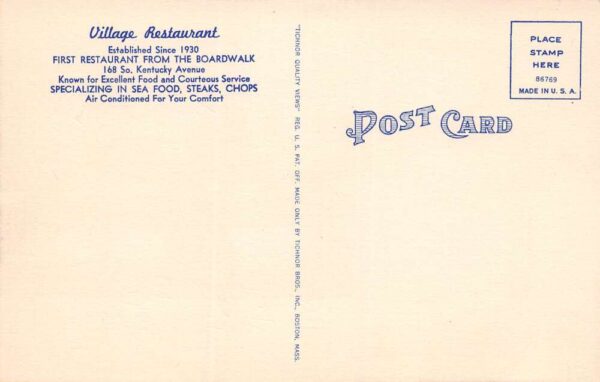 Village Restaurant
Established Since 1930
FIRST RESTAURANT FROM THE BOARDWALK
168 So. Kentucky Avenue
Known for Excellent Food and Courteous Service
SPECIALIZING IN SEA FOOD, STEAKS, CHOPS
Air Conditioned For Your Comfort
"TICHNOR QUALITY VIEWS" REG. U. S. PAT. OFF. MADE ONLY BY TICHNOR BROS., INC., BOSTON, MASS.
POST CARD
PLACE
STAMP
HERE
86769
MADE IN U. S. A.